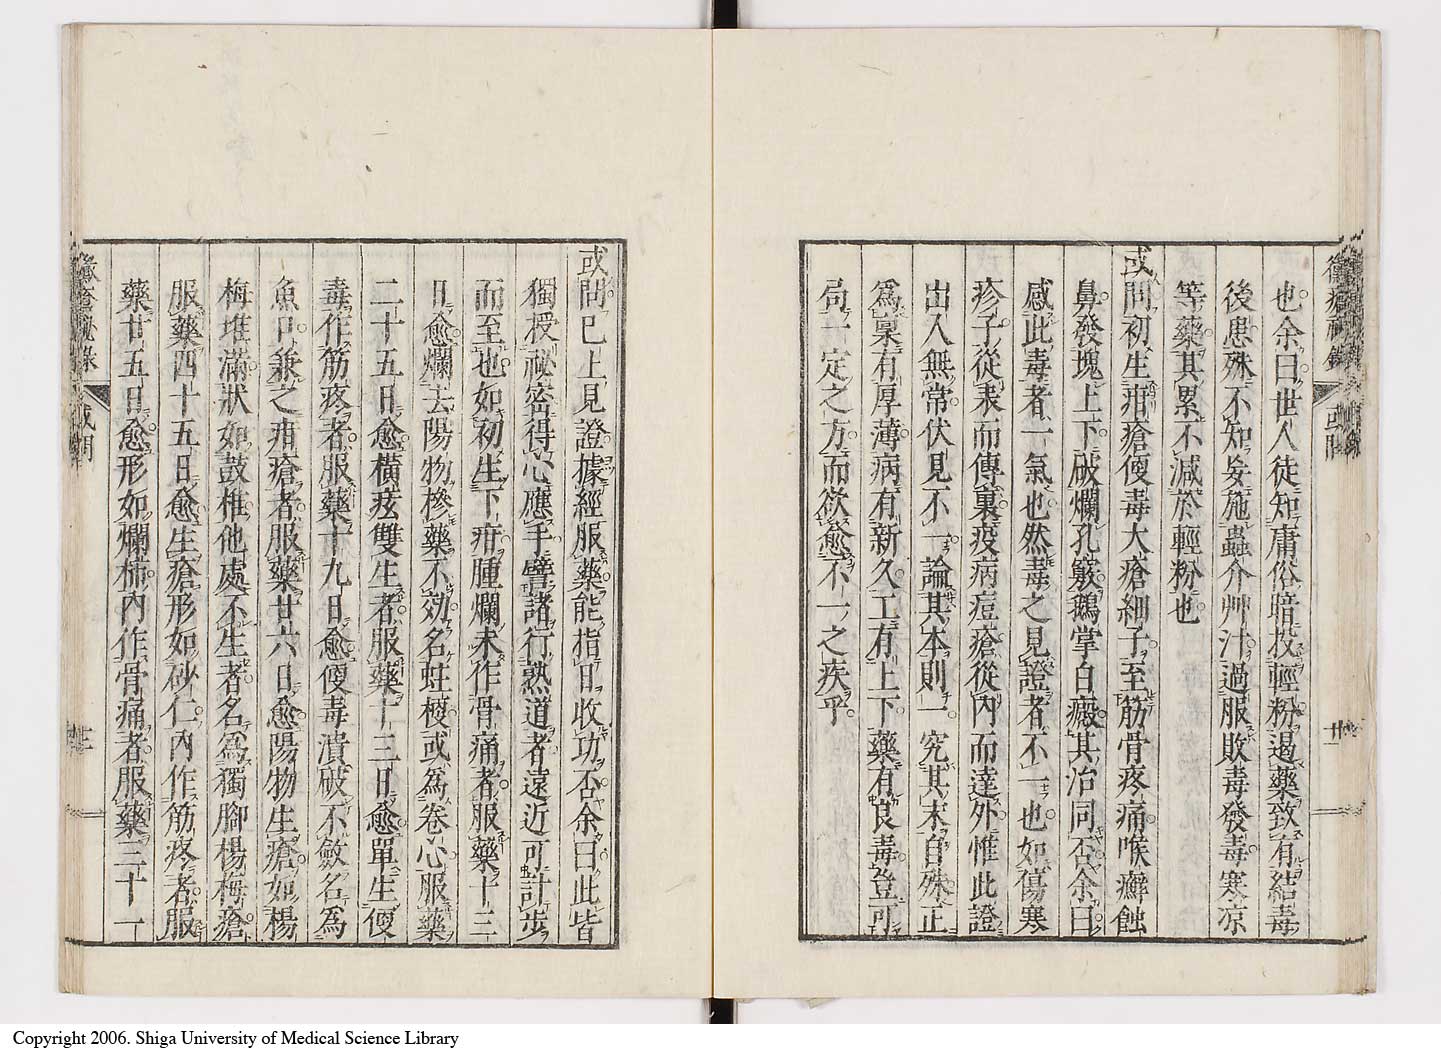 也余曰世人徒知庸俗暗投輕粉遏藥致有結毒
後患殊不知妄施蟲介艸汁過服敗毒發毒寒凉
等藥其累不減於輕粉也
或問初生疳瘡便毒大瘡細子至筋骨疼痛喉癬蝕
鼻發塊上下破爛孔竅鵝掌白癜其治同否余曰
感此毒者一氣也然毒之見證者不一也如傷寒
疹子從表而傳裏疫病痘瘡從內而達外惟此證
出入無常伏見不一論其本則一究其末自殊正
爲稟有厚薄病有新久工有上下藥有良毒豈可
局一定之方而欲愈不一之疾乎
或問已上見證據經服藥能指日收功否余曰此皆
獨授祕密得心應手譬諸行熟道者遠近可計步
而至也如初生下疳腫爛未作骨痛者服藥十三
日愈爛去陽物摻藥不効名蛀梗或爲卷心服藥
二十五日愈橫痃雙生者服藥十三日愈單生便
毒作筋疼者服藥十九日愈便毒潰破不斂名爲
魚口兼之疳瘡者服藥廿六日愈陽物生瘡如楊
梅堆滿狀如鼓椎他處不生者名爲獨腳楊梅瘡
服藥四十五日愈生瘡形如砂仁內作筋疼者服
藥廿五日愈形如爛柿內作骨痛者服藥三十一
黴瘡秘錄 或問
Copyright 2006. Shiga University of Medical Science Library